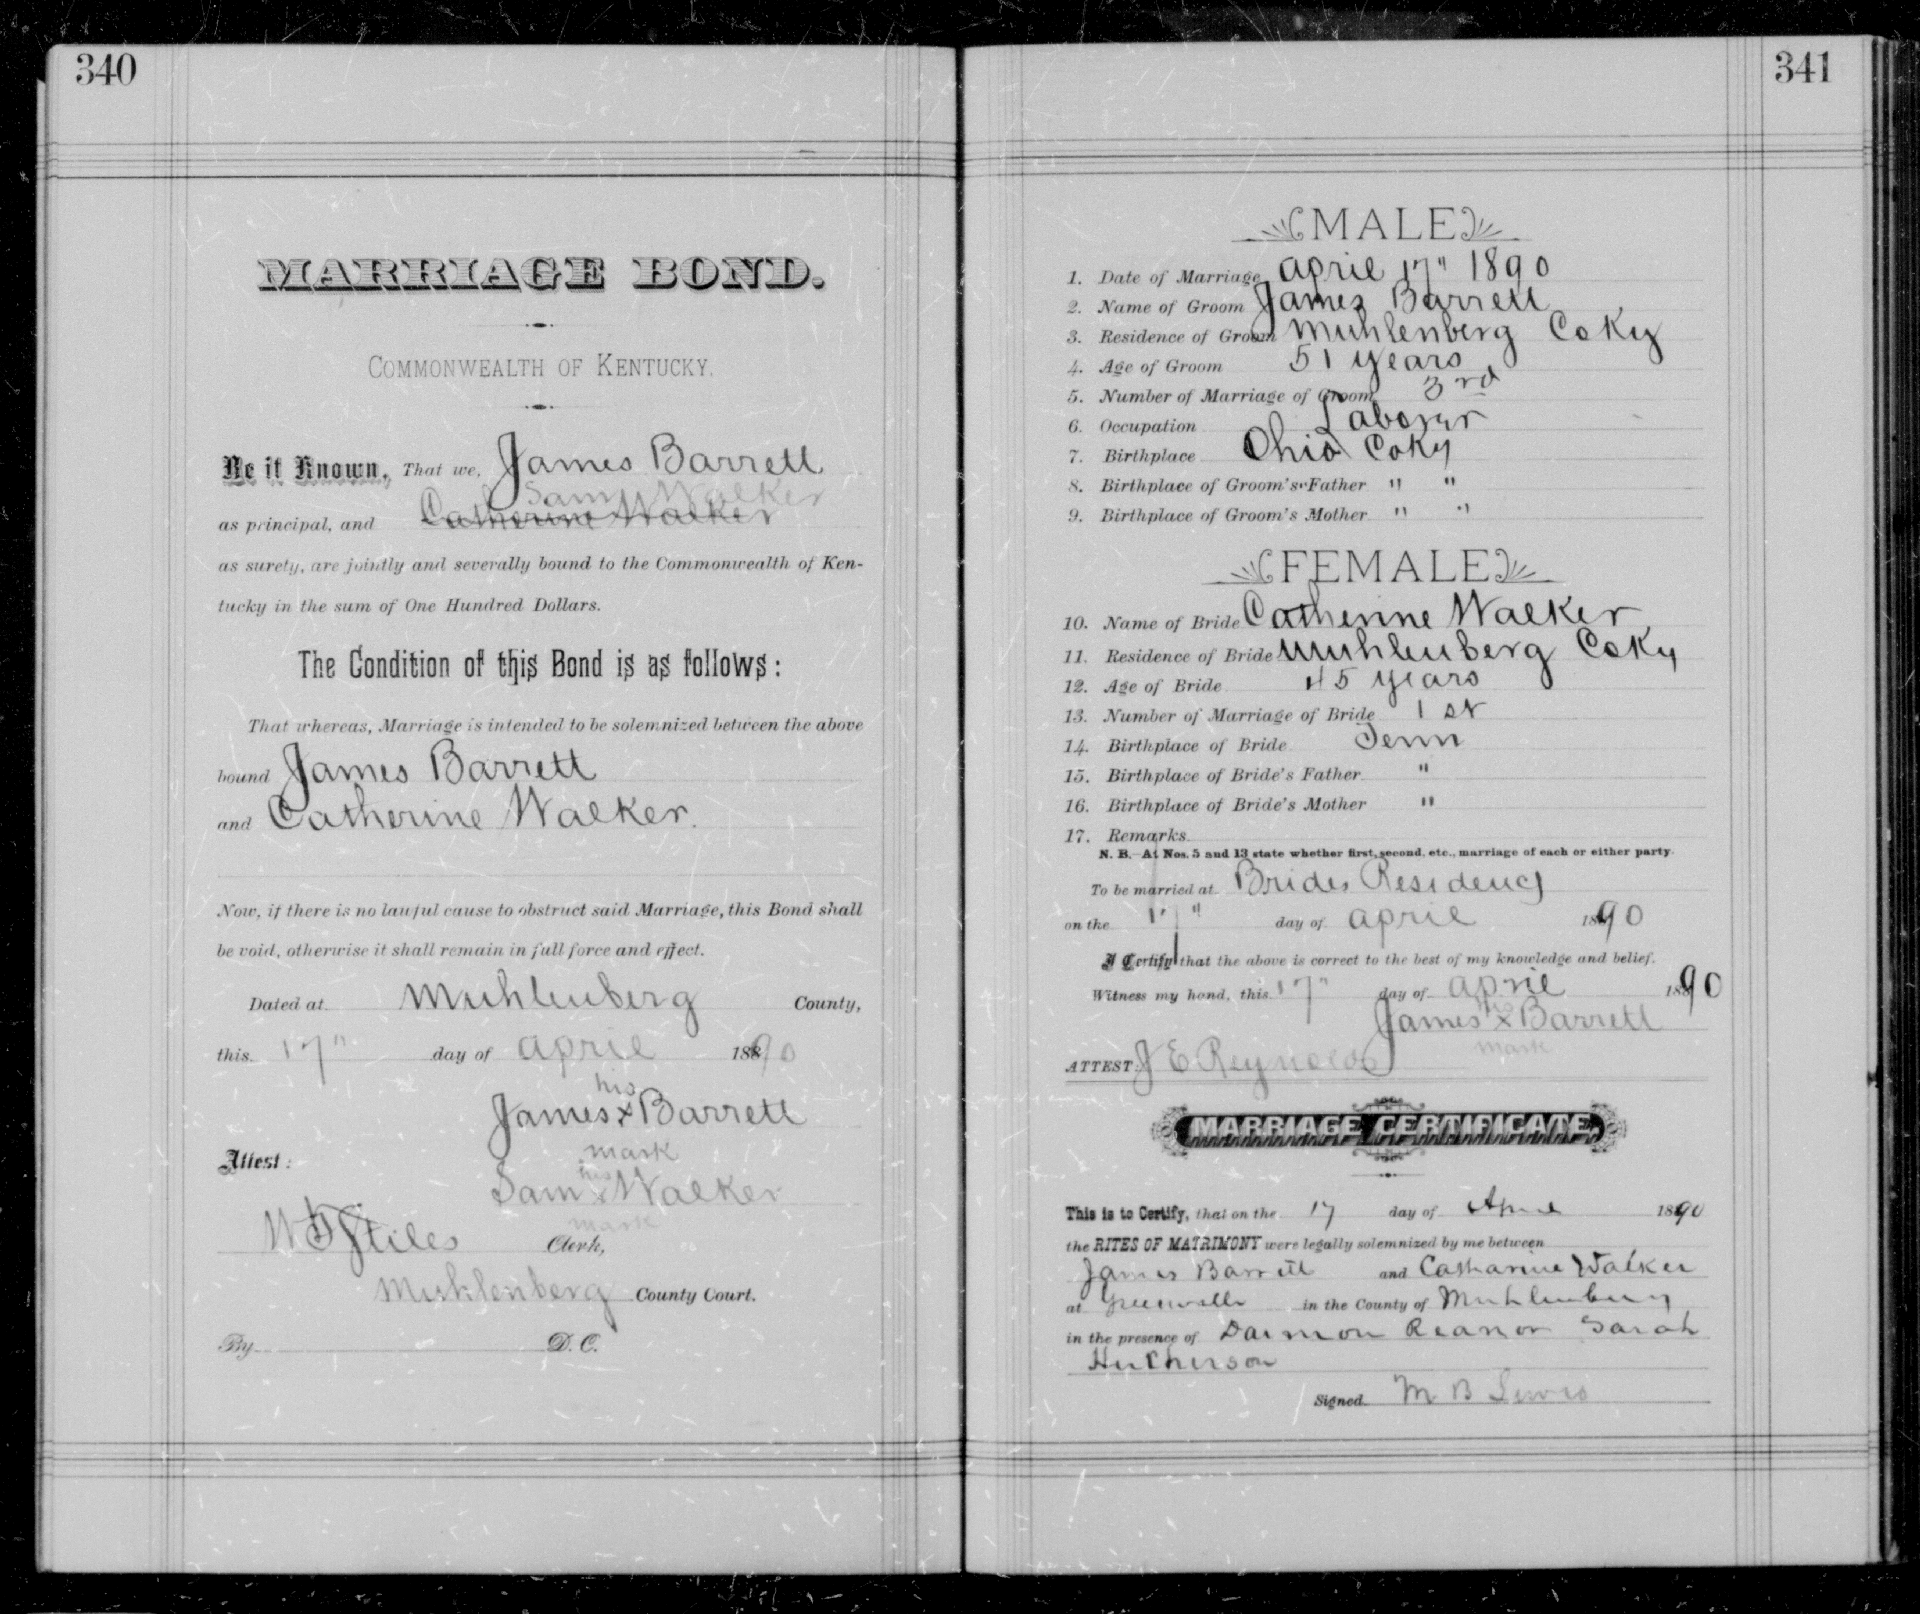 340
MARRIAGE BOND.
COMMONWEALTH OF KENTUCKY.
Be it Known, That we, James Barrett
Sam Walker
as principal, and Catherine Walker
as surety, are jointly and severally bound to the Commonwealth of Ken-
tucky in the sum of One Hundred Dollars.
The Condition of this Bond is as follows:
That whereas, Marriage is intended to be solemnized between the above
bound James Barrett
and Catherine Walker.
Now, if there is no lawful cause to obstruct said Marriage, this Bond shall
be void, otherwise it shall remain in full force and effect.
Dated at Muhlenberg County,
this 17" day of april 1890
his
James x Barrett
mark
Attest:
his
Sam x Walker
mark
Stiles Clerk,
Muhlenberg County Court.
By D. C.
341
MALE
1. Date of Marriage april 17" 1890
2. Name of Groom James Barrett
3. Residence of Groom Muhlenberg Co Ky
4. Age of Groom 51 years
5. Number of Marriage of Groom 3rd
6. Occupation Laborer
7. Birthplace Ohio Co Ky
8. Birthplace of Groom's Father " "
9. Birthplace of Groom's Mother " "
FEMALE
10. Name of Bride Catherine Walker
11. Residence of Bride Muhlenberg Co Ky
12. Age of Bride 45 years
13. Number of Marriage of Bride 1st
14. Birthplace of Bride Tenn
15. Birthplace of Bride's Father "
16. Birthplace of Bride's Mother "
17. Remarks
N. B.—At Nos. 5 and 13 state whether first, second, etc., marriage of each or either party.
To be married at Brides Residency
on the 17" day of april 1890
I Certify that the above is correct to the best of my knowledge and belief.
Witness my hand, this 17" day of april 1890
his
James x Barrett
mark
ATTEST: J E Reynolds
MARRIAGE CERTIFICATE.
This is to Certify, that on the 17 day of April 1890
the RITES OF MATRIMONY were legally solemnized by me between
James Barrett and Catharine Walker
at Greenville in the County of Muhlenburg
in the presence of Daimon Reanor Sarah
Hutcherson
Signed M B Lewis